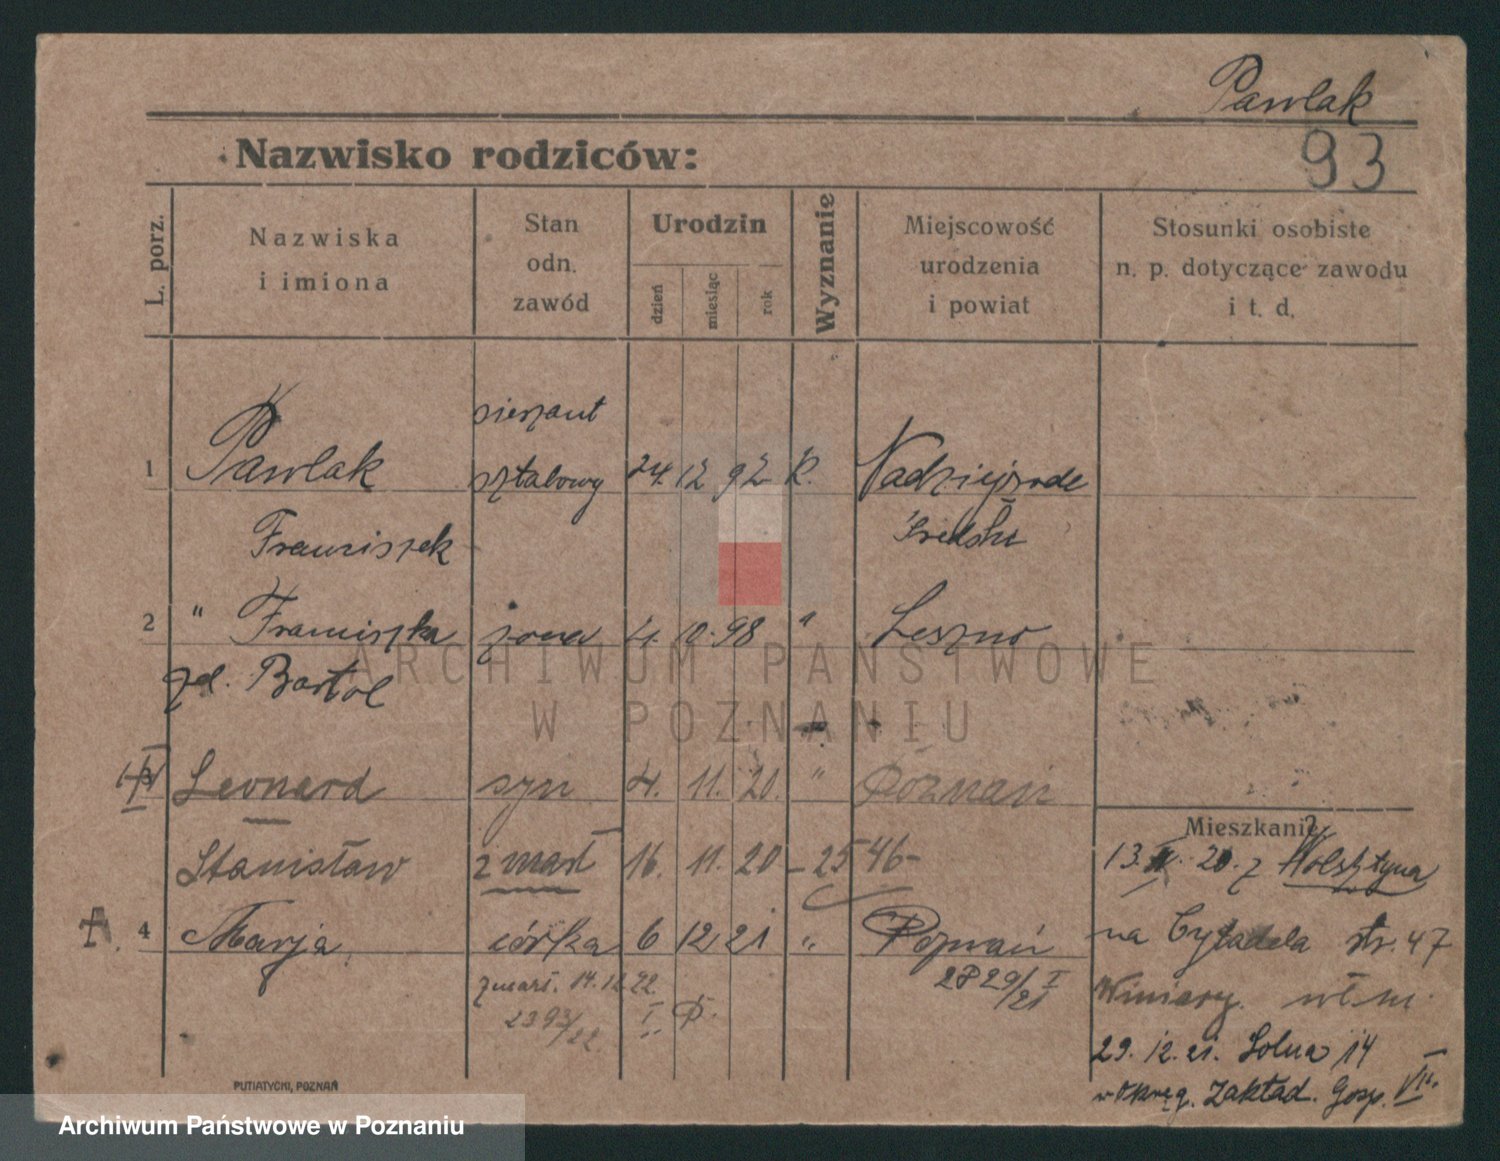 Pawlak
93
Nazwisko rodziców:
L. porz.
Nazwiska
i imiona
Stan
odn.
zawód
Urodzin
dzień
miesiąc
rok
Wyznanie
Miejscowość
urodzenia
i powiat
Stosunki osobiste
n. p. dotyczące zawodu
i t. d.
sierżant
1 Pawlak sztabowy 24. 12 92 k.
Franciszek
2 " Franciszka żona 4. 10. 98 " Leszno
Bartol
Leonard syn 4. 11. 20. " Poznań
Mieszkanie
Stanisław zmarł 16. 11. 20 - 2546 -
13. 20. z Wolsztyna
4 Marja córka 6 12 21 " Poznań
na Cytadela str. 47
zmarł. 14.12.22.
2829/I 21
Winiary
2393/22. I P.
29. 12. 21. Solna 14
Zakład. Gosp. VII.
PUTIATYCKI, POZNAŃ
ARCHIWUM PAŃSTWOWE
W POZNANIU
Archiwum Państwowe w Poznaniu